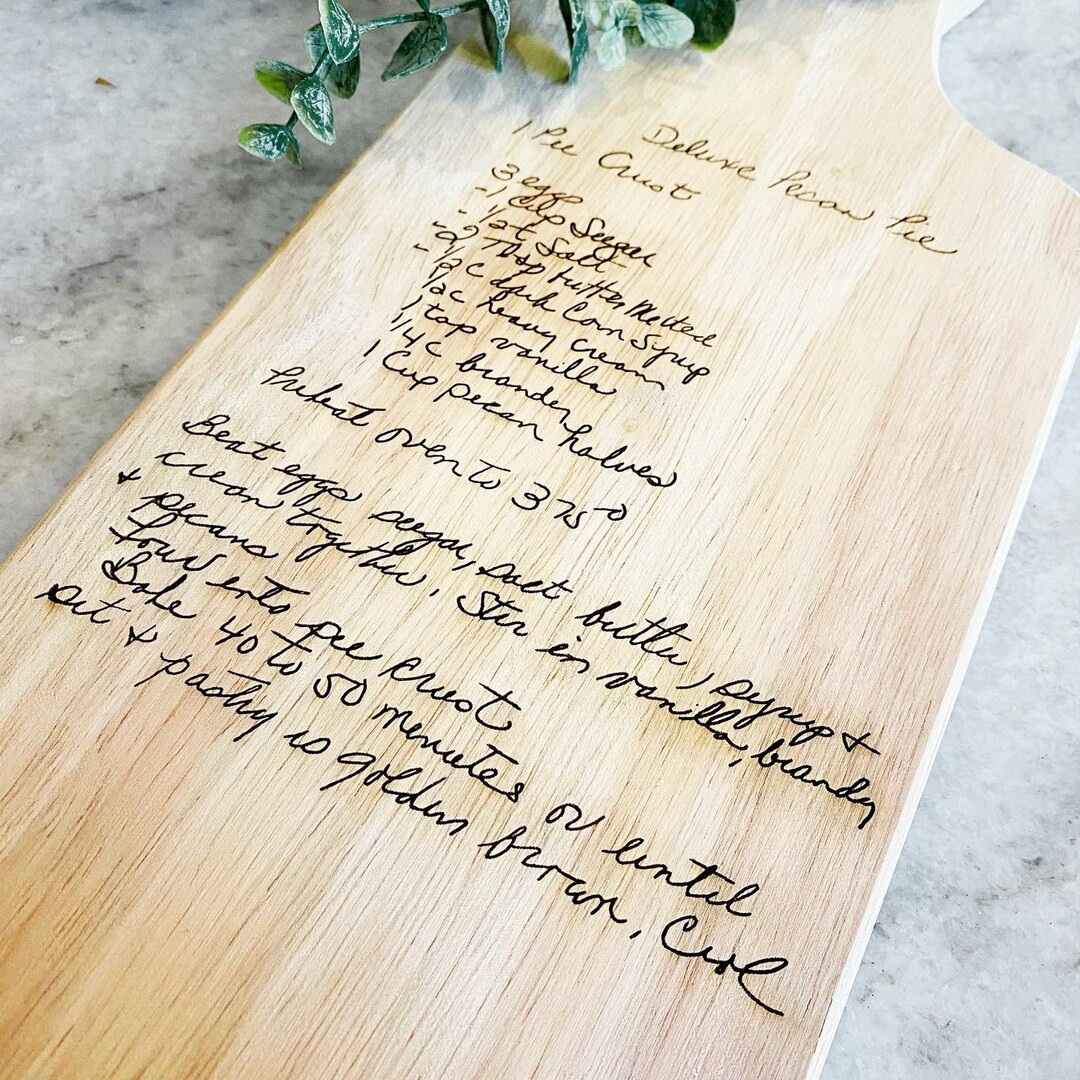 Deluxe Pecan Pie
1 Pie Crust
3 eggs
-1 Cup Sugar
-1/2 t Salt
-2 Tbsp butter Melted
1/2 C dark Corn Syrup
1/2 C heavy cream
1 tsp vanilla
1/4 C brandy
1 Cup pecan halves
Preheat oven to 375°
Beat eggs sugar, salt butter, syrup +
cream together. Stir in vanilla, brandy
+ pecans
Pour into pie crust
Bake 40 to 50 minutes or until
set + pastry is golden brown. Cool